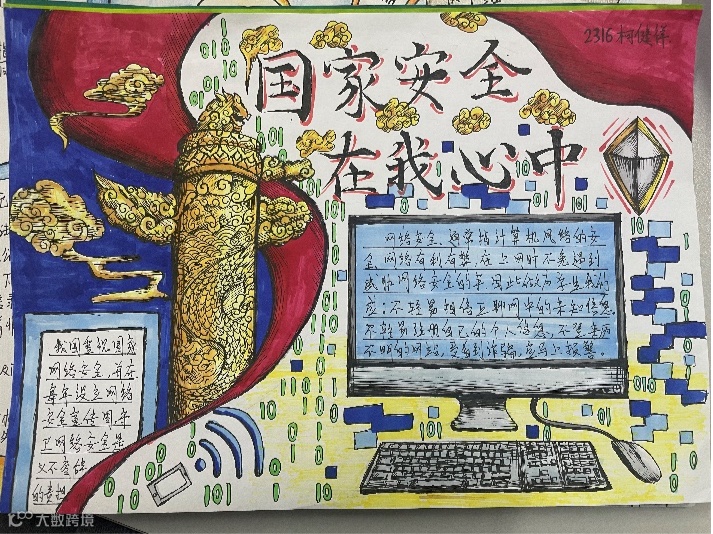 2316 柯健洋
国家安全
在我心中
网络安全,通常指计算机网络的安
全,网络有利有弊,在上网时不免遇到
网络安全的
应:不轻易相信互联网中的
不轻易注册自己的个人信息,不
不明的网站,受到诈骗,应马上报警。
我国重视国家
网络安全,并在
每年设立网络
安全宣传周,
卫网络安全是
义不容辞
的责任
大数跨境